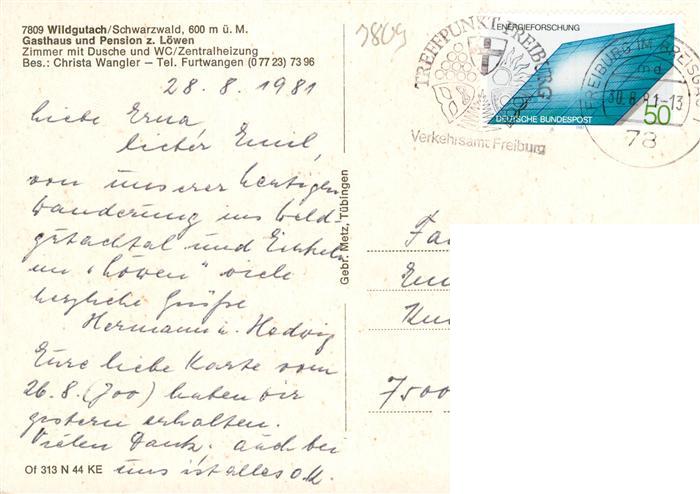 7809 Wildgutach/Schwarzwald, 600 m ü. M.
Gasthaus und Pension z. Löwen
Zimmer mit Dusche und WC/Zentralheizung
Bes.: Christa Wangler – Tel. Furtwangen (0 77 23) 73 96
28. 8. 1981
liebe Erna,
lieber Emil,
von unserer heutigen
Wanderung ins Wild-
gutachtal und Einkehr
im "Löwen" viele
herzliche Grüße
Hermann u. Hedwig
Eure liebe Karte vom
26.8. (Zoo) haben wir
gestern erhalten.
Vielen Dank. auch bei
uns ist alles o.k.
Of 313 N 44 KE
Gebr. Metz, Tübingen
7809
TREFFPUNKT FREIBURG
Verkehrsamt Freiburg
ENERGIEFORSCHUNG
DEUTSCHE BUNDESPOST
50
FREIBURG IM BREISGAU 1
md
30.8.81-13
78
Fa
7500